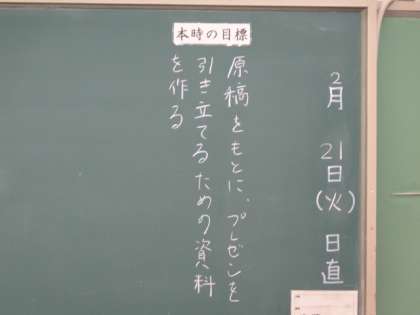 2月 21日(火) 日直
本時の目標
原稿をもとに、プレゼンを
引き立てるための資料
を作る